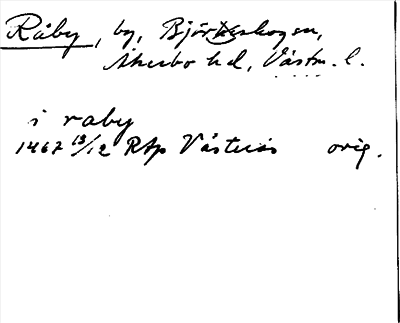 Råby, by, Björkskogen,
Åkerbo hd, Västm. l.
i raby
1467 13/12 RAp Västerås orig.